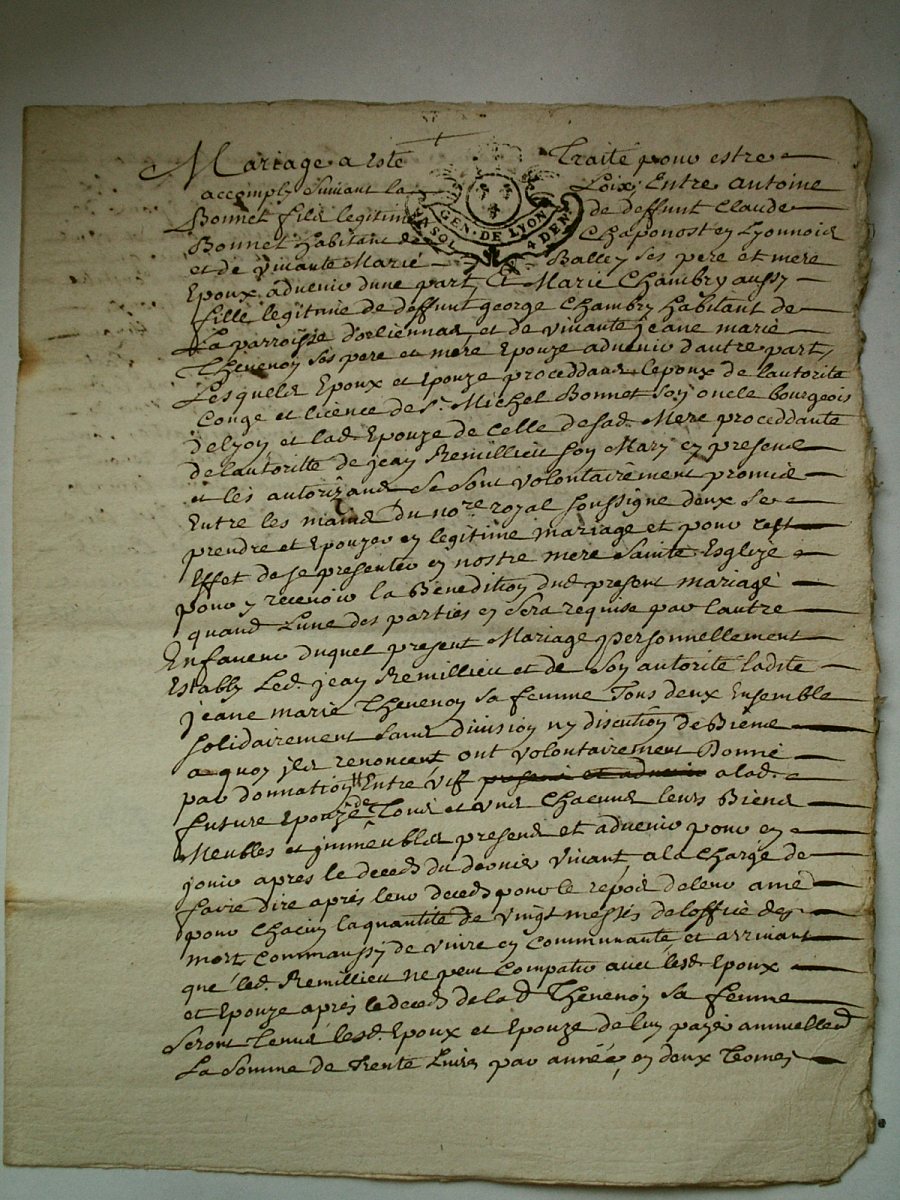 Mariage a este Traité pour estre
accomply suivant la Loix, Entre antoine
Bonnet fils legitime de deffunt Claude
Bonnet habitant de Chaponost en Lyonnois
GEN. DE LYON 4 DEN
et de vivante Marie Balley ses pere et mere
Epoux advenir dune part, Et Marie Chambry aussy
fille legitime de deffunt george Chambry habitant de
La parroisse d'orliennas et de vivante jeane marie
Thevenon ses pere et mere Epouze advenir dautre part,
Lesquels Epoux et Epouze proceddans lepoux de lautorité
Conge et licence de Sr. Michel Bonnet son oncle bourgeois
de lyon et lad. Epouze de Celle de sad. Mere proceddante
de lautoritté de jean Remillieu son Mary en presence
et les autorizans se sont volontairement promis
Entre les mains du nore. royal soussigné deux se
prendre et Epouzer en legitime mariage et pour cest
Effet de se presenter en nostre mere Sainte Esglize
pour y recevoir la Benedition dud. present mariage
quand Lune des parties en sera requise par lautre
Enfaveur duquel present Mariage personnellement
Estably Led. jean Remillieu et de son autorité ladite
jeane marie Thevenon sa femme Tous deux Ensemble
solidairement sans division ny discution de Biens
a quoy jls renoncent ont volontairement Donné
par donnation Entre vif present et advenir a lad.
future Epouze de Tous et uns Chacuns leurs Biens
Meubles et jmmeubles presens et advenir pour en
jouir apres le deceds du dernier vivant, a la Charge de
faire dire apres leur deceds pour le repos de leur ame
pour chacun la quantité de vingt messes de loffice des
mort Comm'aussy de vivre en Communauté et arrivant
que led. Remillieu ne peut Compatir avec lesd. Epoux
et Epouze apres le deceds de lad. Thevenon sa femme
Seront Tenus lesd. Epoux et Epouze de luy payer annuellemt
La Somme de Trente Livres par année, en deux Termes